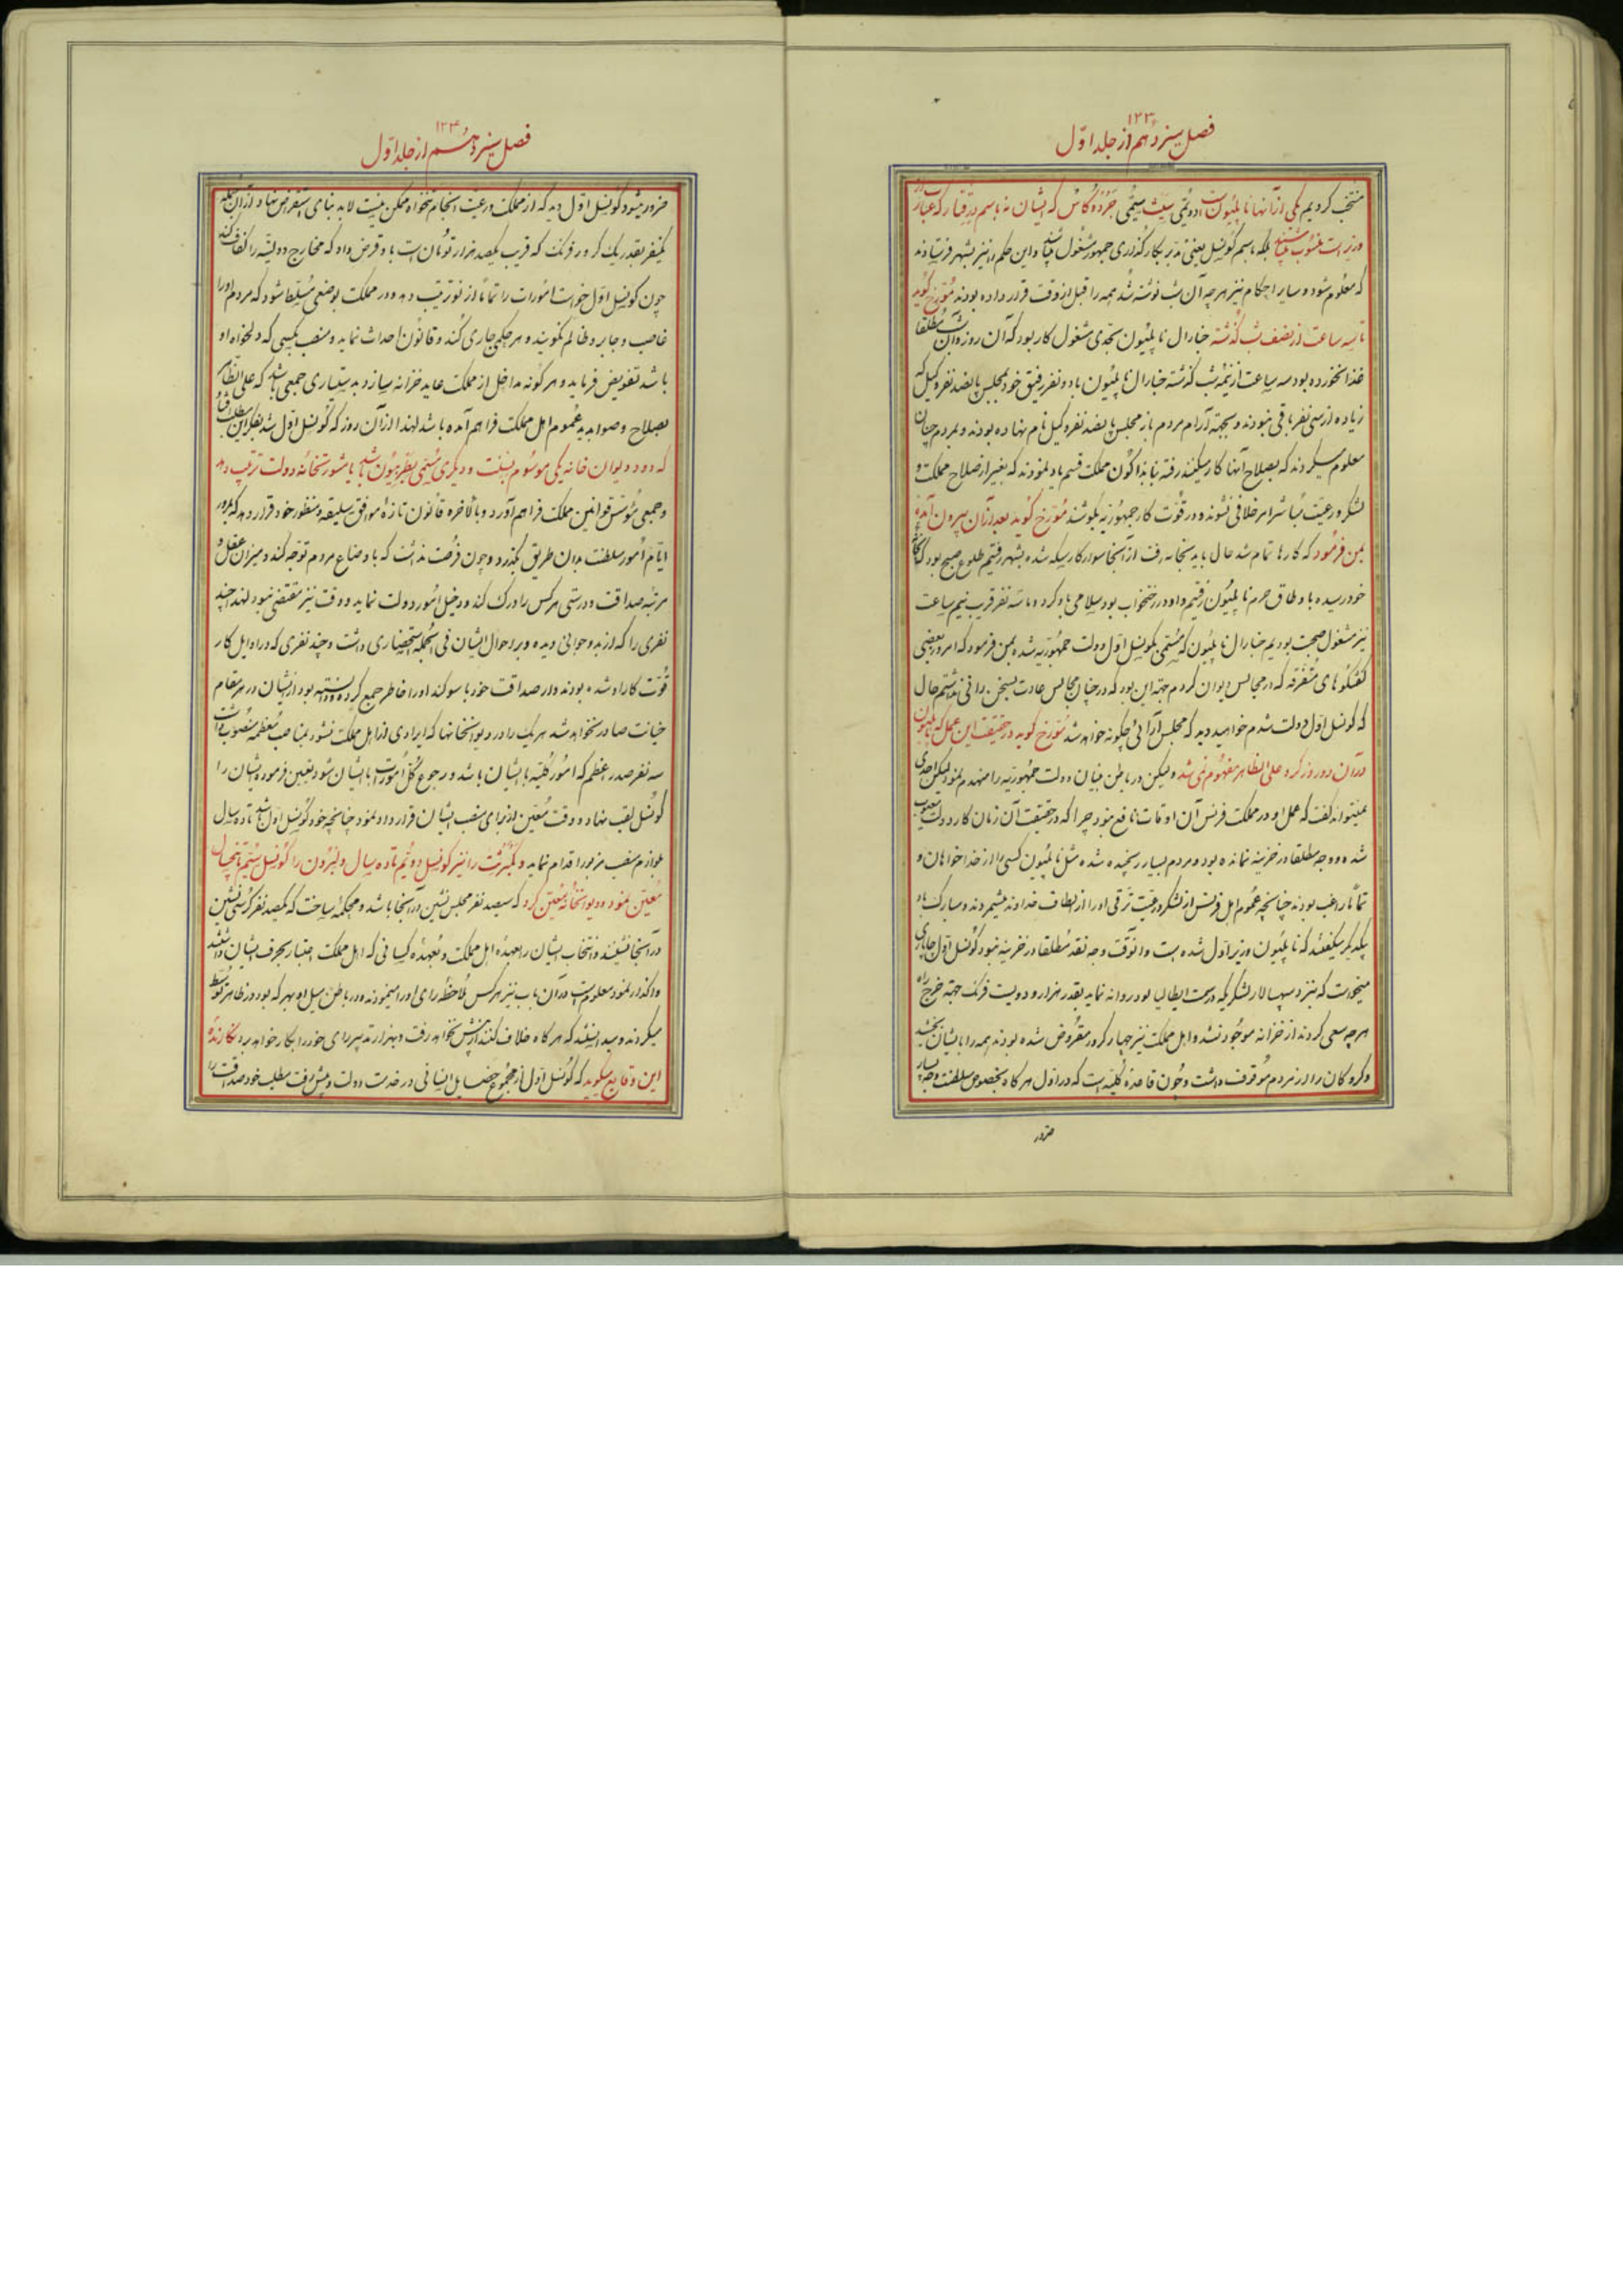 ۱۲۳
فصل سیزدهم از جلد اول
منتخب کردیم یکی از آنها ناپلیون است و دویمی سیث سیمی جرده کاس که ایشان نه باسم درقتار که عبارت از
وزیر است منسوب باشند بلکه باسم کونسل یعنی مدبر بکارگذاری جمهور مشغول باشند و این حکم را نیز بشهر فرستادند
که معلوم شود و سایر احکام نیز هر چه آن شب نوشته شد همه را قبل از وقت قرار داده بودند مورخ گوید
تا سه ساعت از نصف شب گذشته جنارال ناپلیون بجدی مشغول کار بود که آن روز و آن شب مطلقا
غذا نخورده بود سه ساعت از نیمه شب گذشته جنارال ناپلیون با دو نفر رفیق خود بمجلس پانصد نفر وکیل که
زیاده از سی نفر باقی نبودند و بجهة آرام مردم باز مجلس پانصد نفر وکیل نام نهاده بودند و بمردم چنان
معلوم میکردند که بصلاح آنها کار میکنند رفته بنا بذاکون مملکت قسم یاد نمودند که بغیر از صلاح مملکت و
لشکر و رعیت مباشر امر خلافی نشوند و در قوت کار جمهوریه بکوشند مورخ گوید بعد از آن بیرون آمده
بمن فرمود که کارها تمام شد حال باید بخانه رفت از آنجا سوار کالسکه شده بشهر رفتیم طلوع صبح بود که بخانه
خود رسیده باوطاق حرم ناپلیون رفتیم و او در رختخواب بود سلامی باو کرد و ما سه نفر قریب نیم ساعت
نیز مشغول صحبت بودیم جنارال ناپلیون که مسمی بکونسل اول دولت جمهوریه شده بمن فرمود که امروز بعضی
گفتگوهای متفرقه که در مجالس دیوان کردم جهة این بود که در چنان مجالس عادت بسخن رانی نداشتم حال
که کونسل اول دولت شدم خواهید دید که مجلس آرائی چگونه خواهد شد مورخ گوید در حقیقت این عمل که ناپلیون
در آن دو روز کرد علی الظاهر مفهوم نمی شد ولیکن در باطن بنیان دولت جمهوریه را منهدم نمود لیکن احدی
نمیتواند گفت که عمل او در مملکت فرنس آن اوقات نافع نبود چرا که در حقیقت آن زمان کار دولت معیوب
شده و وجه مطلقا در خزینه نمانده بود و مردم بسیار رنجیده شده مثل ناپلیون کسی را از خدا خواهان و
تماما راغب بودند چنانچه عموم اهل فرنس از لشکر و رعیت ترقی او را از الطاف خداوند میشمردند و مبارک باد
یکدیگر میگفتند که ناپلیون وزیر اول شده است و انوقت وجه نقد مطلقا در خزینه نبود کونسل اول چاپاری
میخواست که نزد سپهسالار لشکریکه در سمت ایطالیا بود روانه نماید بقدر هزار و دویست فرنک جهة خرج راه
هر چه سعی کردند از خزانه موجود نشد و اهل مملکت نیز چهار کرور مقروض شده بودند همه را بایشان بخشید
و گروگان را در نزد مردم موقوف داشت و چون قاعده کلیه است که در اول هر کار بخصوص سلطنت وجه بسیار
ضرور
۱۲۴
فصل سیزدهم از جلد اول
ضرور میشود کونسل اول دید که از مملکت و رعیت انجام تنخواه ممکن نیست لابد بنای استقراض نهاد از آن جمله
یکنفر بقدر یک کرور فرنک که قریب یکصد هزار تومان است باو قرض داد که مخارج دولتی را کفاف کند
چون کونسل اول خواست امورات را تماما از نو ترتیب دهد و در مملکت بوضعی مسلط شود که مردم او را
غاصب و جابر و ظالم نگویند و هر حکمی جاری کند و قانون احداث نماید و منصب بکسی که دلخواه او
باشد تفویض فرماید و هر گونه مداخل از مملکت عاید خزانه سازد بدستیاری جمعی باشد که علی الظاهر
بصلاح و صوابدید عموم اهل مملکت فراهم آمده باشد لهذا از آن روز که کونسل اول شد بفکر این مطلب افتاد
که دو دیوان خانه یکی موسوم بسنت و دیگری مسمی بطریبیون باشد با مشورتخانه دولت ترتیب دهد
و جمعی مؤسس قوانین مملکت فراهم آورد و بالاخره قانون تازه موافق سلیقه و منظور خود قرار دهد که بمرور
ایام امور سلطنت بدان طریق بگذرد و چون فرصت نداشت که باوضاع مردم توجه کند و میزان عقل و
مرتبه صداقت و درستی هر کس را درک کند و دخیل امور دولت نماید و وقت نیز مقتضی نبود لهذا چند
نفری را که از بدو جوانی دیده و بر احوال ایشان فی الجمله استحضاری داشت و چند نفری که در اوایل کار
قوت کار او شده بودند و از صداقت خود با سوگند او را خاطر جمع کرده و دانسته بود از ایشان در هر مقام
خیانت صادر نخواهد شد هر یک را در دیوانخانها که ایرادی از اهل مملکت نشود بمناصب معظمه منصوب داشت
سه نفر صدر اعظم که امور کلیه با ایشان باشد و رجوع کل امورات با ایشان شود تعیین فرموده ایشان را
کونسل لقب نهاد و وقت معین از برای منصب ایشان قرارداد نمود چنانچه خود کونسل اول باشد تا ده سال
بلوازم منصب مزبور اقدام نماید و کمبرست را نیز کونسل دویم تا ده سال و لبرون را کونسل سیم تا پنجسال
معین نمود و دیوانخانه معین کرد که سیصد نفر مجلس نشین در آنجا باشد و محکمه ساخت که یکصد نفر کرسی نشین
در آنجا نشینند و انتخاب ایشان را بعهده اهل مملکت و بعهده کسانی که اهل مملکت اعتبار بحرف ایشان داشتند
واگذار نمود معلوم است در آن باب نیز هر کس ملاحظه رای او را مینمودند و در باطن میل او بهر که بود در ظاهر توسط
میکردند و میدانستند که هر گاه خلاف کنند از پیش نخواهد رفت و بهزار تدبیر رای خود را بکار خواهد برد نگارنده
این وقایع میگوید که کونسل اول از مجموع خصایل انسانی در خدمت دولت و پیش رفت مطلب خود صداقت را